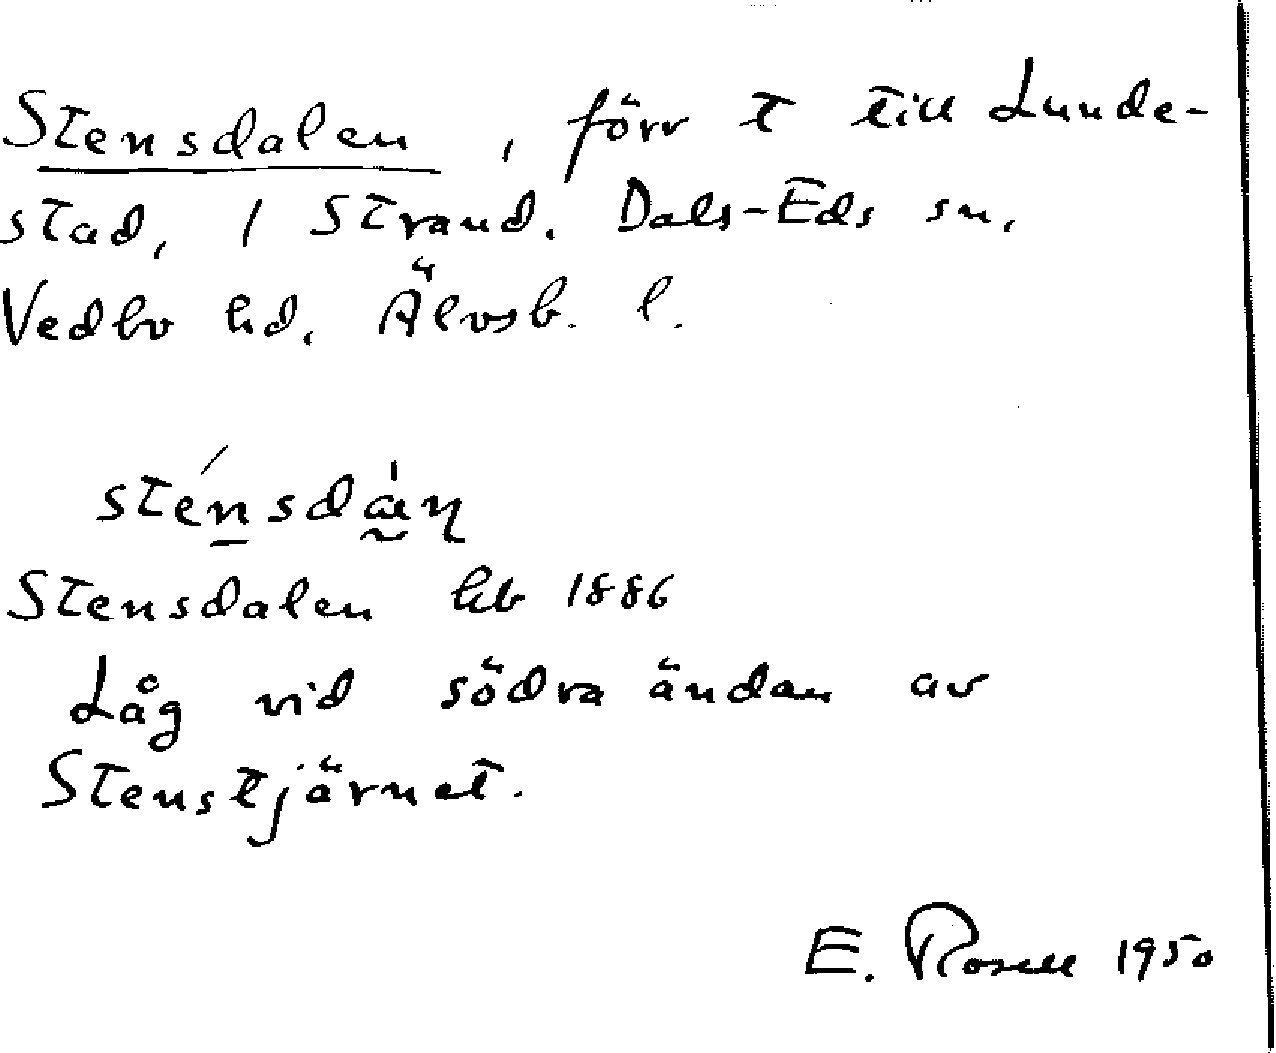 Stensdalen, förr t till Lunde-
stad, 1 Strand. Dals-Eds sn,
Vedbo hd, Älvsb. l.
sténsdàn
Stensdalen hb 1886
Låg vid södra ändan av
Stenstjärnet.
E. Rosell 1950